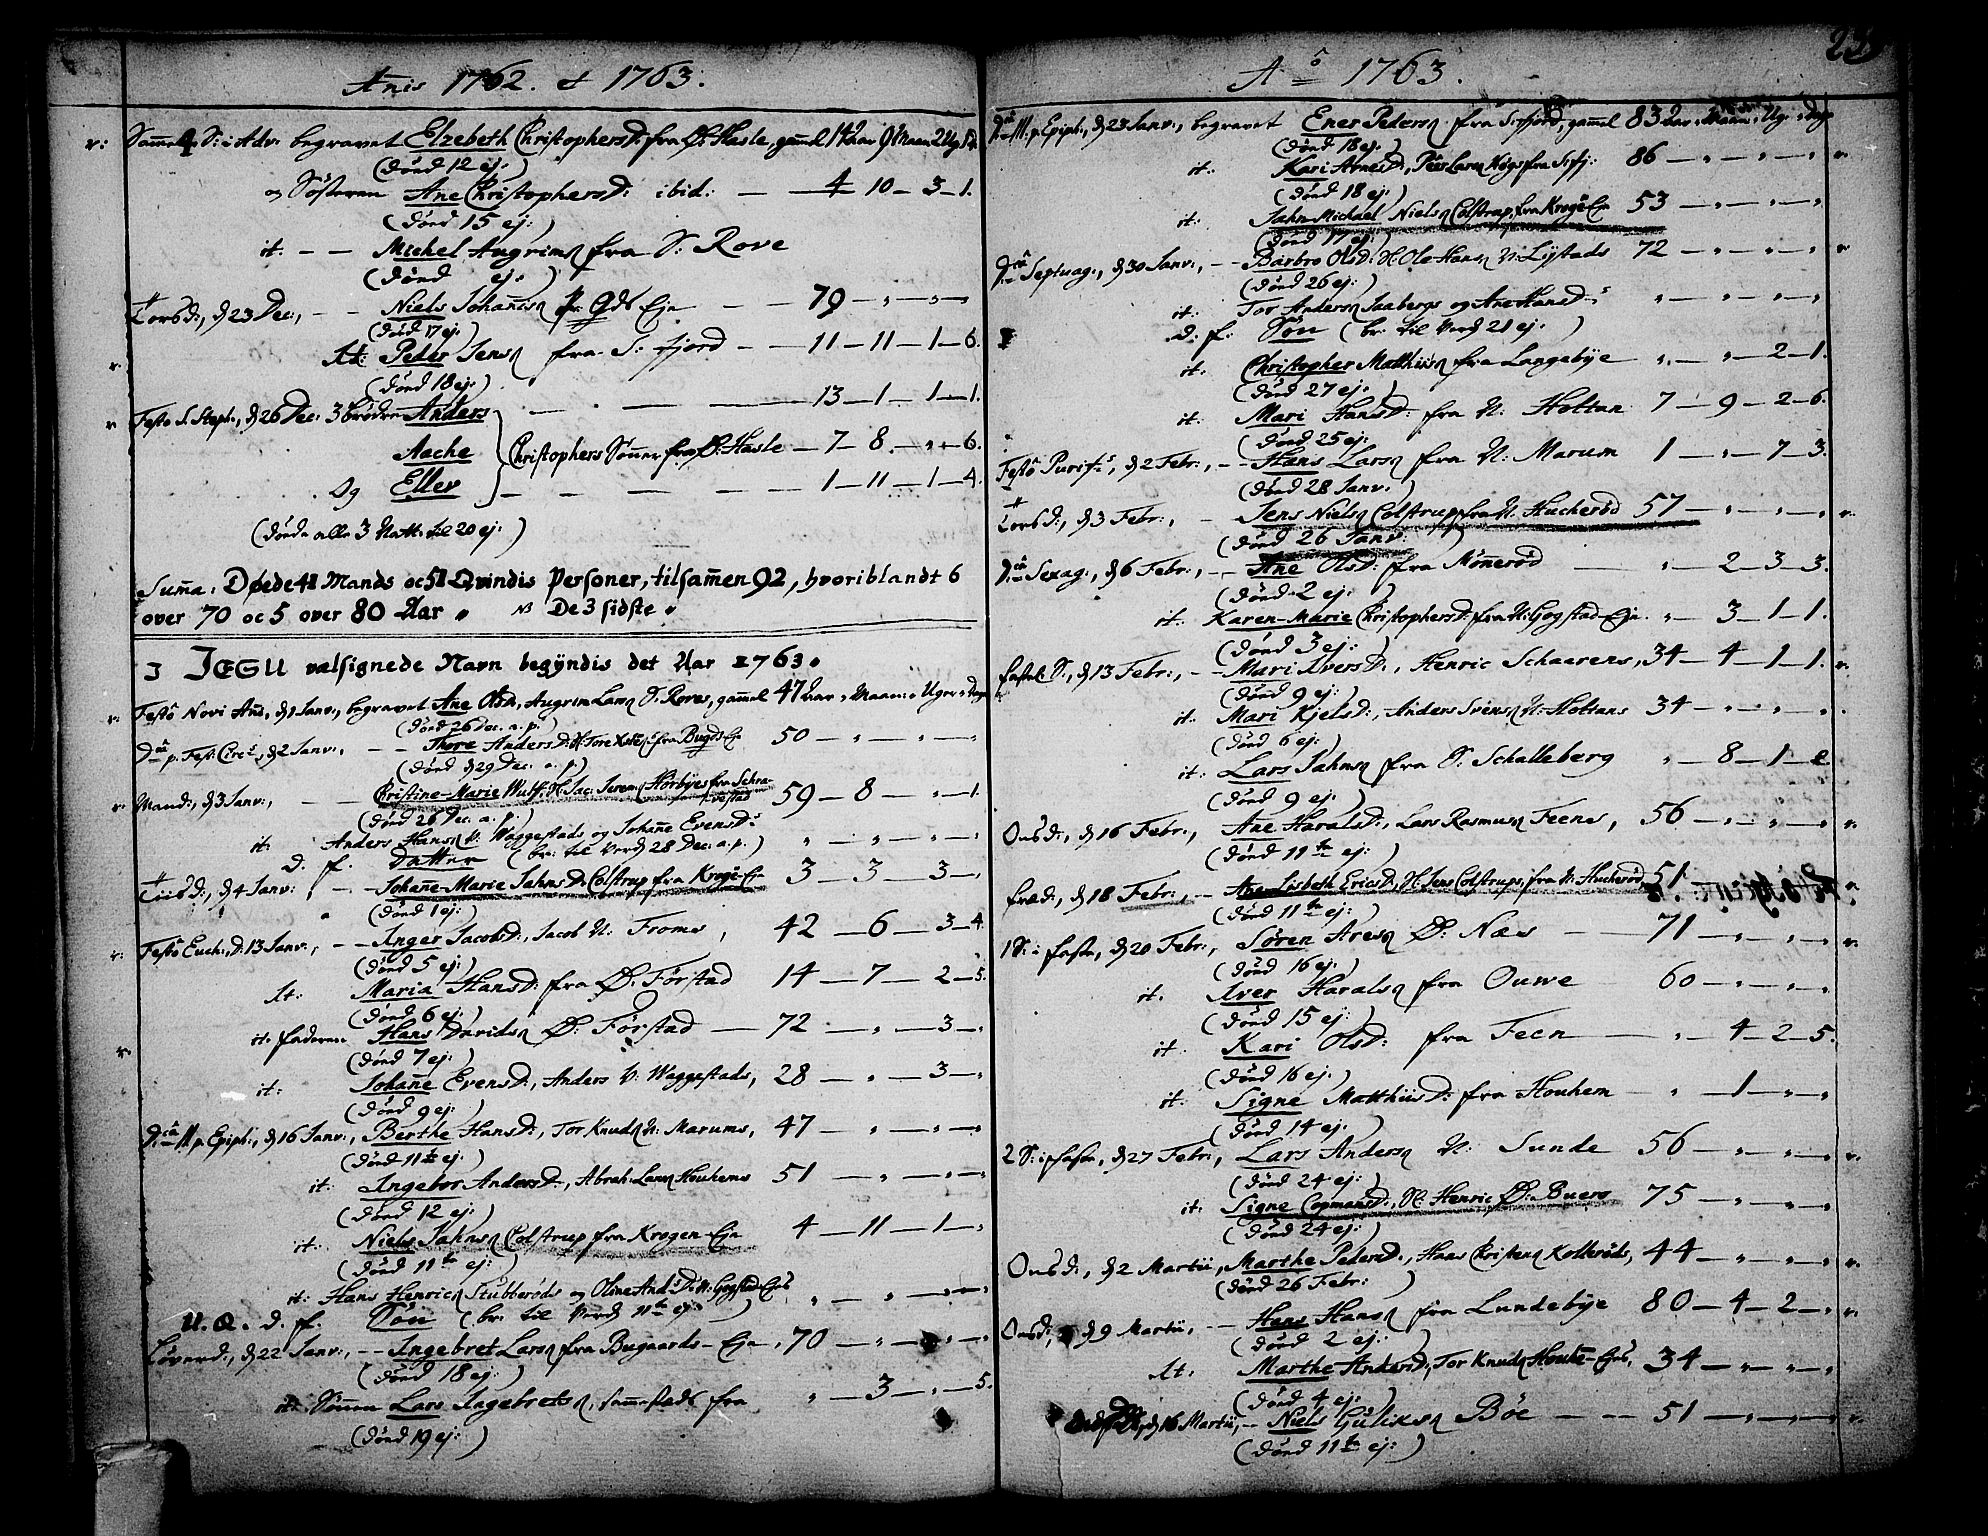 Añis 1762. & 1763.
begravet Elzebeth Christophersd: fra Ø: Hasle, gammel 14 Aar 9 Maan 2 Ug 5 d.
(død 12 ej:)
og Søsteren Ane Christophersd: ibid: — 4 — 10 — 3 — 1.
(død 15 ej:)
it. — — Michel Angrims fra S: Rove
(død ej:)
Torsd:, d 23 Dec:, — — Niels Johañs Eje — — 79 — „ — „ — „
(død 17 ej:)
It: Peder Jens fra S: fjord — — 11 — 11 — 1 — 6.
(død 18 ej:)
Festo S. Steph:, d 26 Dec: 3 brødre Anders — — — 13 — 1 — 1 — 1.
Aache Christophers Sønner fra Ø: Hasle — 7 — 8 — „ — 6.
Og Ellev — — — 1 — 11 — 1 — 4.
(døde alle 3 Natt: til 20 ej:)
Suma: Døede 41 Mands oc 51 Qvindis Personer, tilsamen 92, hvoriblandt 6
over 70 oc 5 over 80 Aar „ NB De 3 sidste „
I JESU valsignede Navn begÿndis det Aar 1763.
Festo Novi Añi, d 1 Janv:, begravet Ane Olsd:, Angrim Lars S. Roves, gammel 47 Aar „ Maan: „ Uger „ Dage
(død 26 Dec. a. p.)
p. Fest: Circ:, d 2 Janv:, — — Thore Andersd: fra Bugds Eje 50 — „ — „ — „
(død d 29 Dec. a. p.)
Mand:, d 3 Janv:, — — Christine-Marie Wulf: H: Jac: Seren Hørbyes fra Schravestad 59 — 8 — „ — 1.
(død 26 Dec. a. p.)
it. Anders Hans V: Waggestads og Johañe Evensd:s
d. f. Datter (br: til Verd 28 Dec. a. p.) „ — „ — „ — „
Tiisd:, d 4 Janv:, — — Johañe-Marie Jahnsd: Colstrup fra Kroge-Eje 3 — 3 — 3 — „
(død 1 ej:)
Festo Euch:, D: 13 Janv:, — — Inger Jacobsd:, Jacob N: Froms, 42 — 6 — 3 — 4.
(død 5 ej:)
It: Maria Hansd: fra Ø: Førstad 14 — 7 — 2 — 5.
(død 6 ej:)
it. faderen Hans Davids Ø: Førstad — 72 — „ — 3 — „
(død 7 ej:)
it: Johañe Evensd:, Anders V: Waggestads, 28 — „ — 3 — „
(død 9 ej:)
II p. Epiph:, d 16 Janv:, Berthe Hansd:, Tor Knuds N: Marums, 47 — „ — „ — „
(død 11te ej:)
it: Ingebor Andersd:, Abrah: Lars Houhems 51 — „ — „ — „
(død 12 ej:)
it: Niels Jahns Colstrup fra Krogen-Eje 4 — 11 — 1 — „
(død 11te ej:)
it: Hans Henrics Stubberøds og Oline And:sd: N: Gogstad-Ejes
U. Q. d. f. Søn (br: til Verd 11te ej:) „ — „ — „ — „
Løverd:, d 22 Janv:, — — Ingebret Lars fra Bugaards-Eje, 70 — „ — „ — „
(død 18 ej:)
it. Sønnen Lars Ingebrets, samestads fra „ — 3 — „ — 5.
(død 19 ej:)
A° 1763.
p. Epiph:, d 23 Janv:, begravet Ener Peders fra S: fjord, gammel 83 Aar „ Maan: „ Ug: „ Dage
(død 18 ej:)
it: Kari Arnesd:, 86 — „ — „ — „
(død 18 ej:)
it: Jahn-Michael Niels Colstrup fra Kroge-Eje 53 — „ — „ — „
(død 17 ej:)
Septuag:, d 30 Janv:, — — Barbro Olsd: H: Ole Hans N: Lÿstads 72 — „ — „ — „
(død 26 ej:)
it: Tor Anders Saabergs og Ane Hansd:s „ — „ — „ — „
d. f. Søn (br: til Verd 21 ej:)
it: Christopher Matthiis fra Langebÿe „ — „ — 2 — 1.
(død 27 ej:)
it: Mari Hansd: fra N: Holtan 7 — 9 — 2 — 6.
(død 25 ej:)
Festo Purif:s, d 2 Febr:, — — Hans Lars fra N: Marum 1 — „ — 7 — 3.
(død 28 Janv:)
Torsd:, d 3 Febr:, — Jens Niels Colstrup fra N: Hucherød 57 — „ — „ — „
(død 26 Janv:)
Sexag:, d 6 Febr:, — — Ane Olsd: fra Mønnerød — „ — 2 — 3 — 3.
(død 2 ej:)
it: Karen-Marie Christophersd: fra N: Gogstad-Eje „ — 3 — 1 — 1.
(død 3 ej:)
Fastel: S:, d 13 Febr:, — — Mari Iversd:, Henric Schaarens, 34 — 4 — 1 — 1.
(død 9 ej:)
it: Mari Kjelsd:, Anders Svens N: Holtans 34 — „ — „ — „
(død 6 ej:)
it: Lars Jahns fra S: Schalleberg „ — 8 — 1 — 2
(død 9 ej:)
Onsd:, d 16 Febr:, Ane Haralsd:, Lars Rasmus Feens, 56 — „ — „ — „
(død 11te ej:)
Fred:, d 18 Febr:, — — Ane-Lisbeth Ericsd:, H: Jens Colstrups, fra N: Hucherød 51
(død 11te ej:)
1 S: i Faste, d 20 Febr:, Søren Ares Ø: Næs — — 71 — „ — „ — „
(død 16 ej:)
it. Iver Harals fra Ouwe 60 — „ — „ — „
(død 15 ej:)
it. Kari Olsd: fra Feen — — „ — 4 — 2 — 5.
(død 16 ej:)
it: Signe Matthiisd: fra Houhem — „ — 1 — „ — „
(død 14 ej:)
2 S: i Faste, d 27 Febr:, Lars Anders N: Sunde 56 — „ — „ — „
(død 24 ej:)
it: Signe Copmansd:, H: Henric Ø: Buers 75 — „ — „ — „
(død 24 ej:)
Onsd:, d 2 Martii, Marthe Pedersd:, Hans Christens Kolterøds, 44 — „ — „ — „
(død 26 Febr:)
Onsd:, d 9 Martii, — — Hans Hans fra Lundebÿe 80 — 4 — 2 — „
(død 2 ej:)
It. Marthe Andersd:, Tor Knuds Houhem-Ejes, 34 — „ — „ — „
(død 4 ej:)
d 16 Martii, — — Niels Guliks Bøe — — 51 — „ — „ — „
(død 11te ej:)